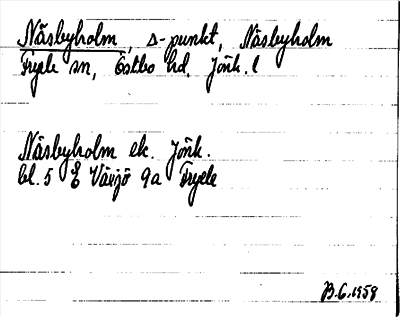 Näsbyholm, ∆-punkt, Näsbyholm
Fryele sn, Östbo hd. Jönk. l
Näsbyholm ek. Jönk.
bl. 5 E Växjö 9a Fryele
B.G. 1958